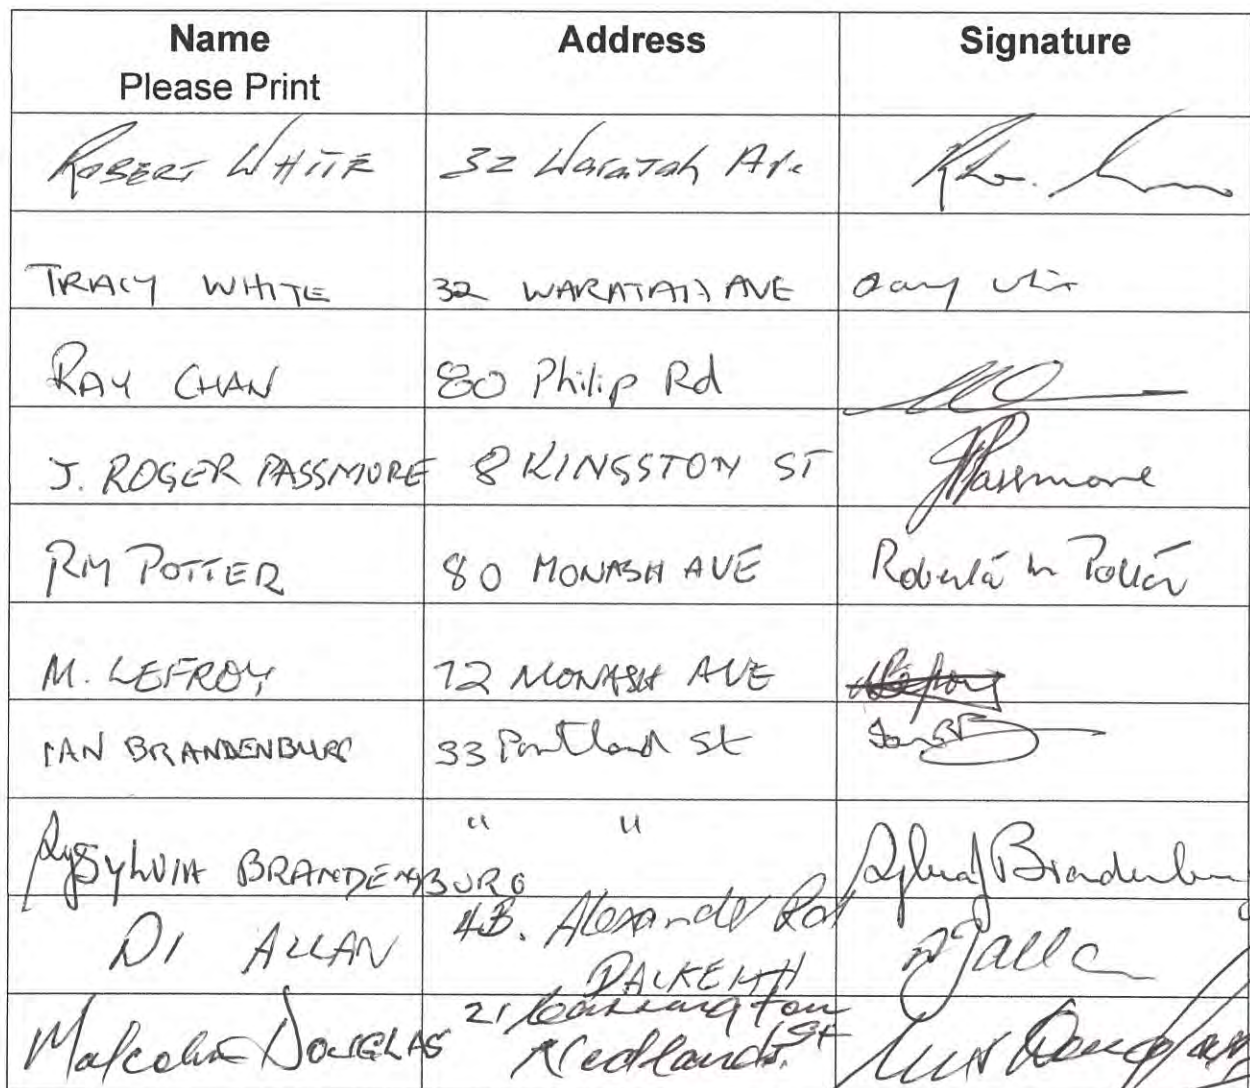 Name Address Signature
Please Print
ROBERT WHITE 32 Waratah Ave
TRACY WHITE 32 WARATAH AVE
RAY CHAN 80 Philip Rd
J. ROGER PASSMORE 8 KINGSSTON ST JPassmore
RM POTTER 80 MONASH AVE Roberta m Potter
M. LEFROY 72 MONASH AVE Lefroy
IAN BRANDENBURG 33 Portland St
SYLVIA BRANDENBURG " " Brandenburg
DI ALLAN 4B. Alexander Rd
DALKEITH
Malcolm DOUGLAS 21 St
Nedlands.